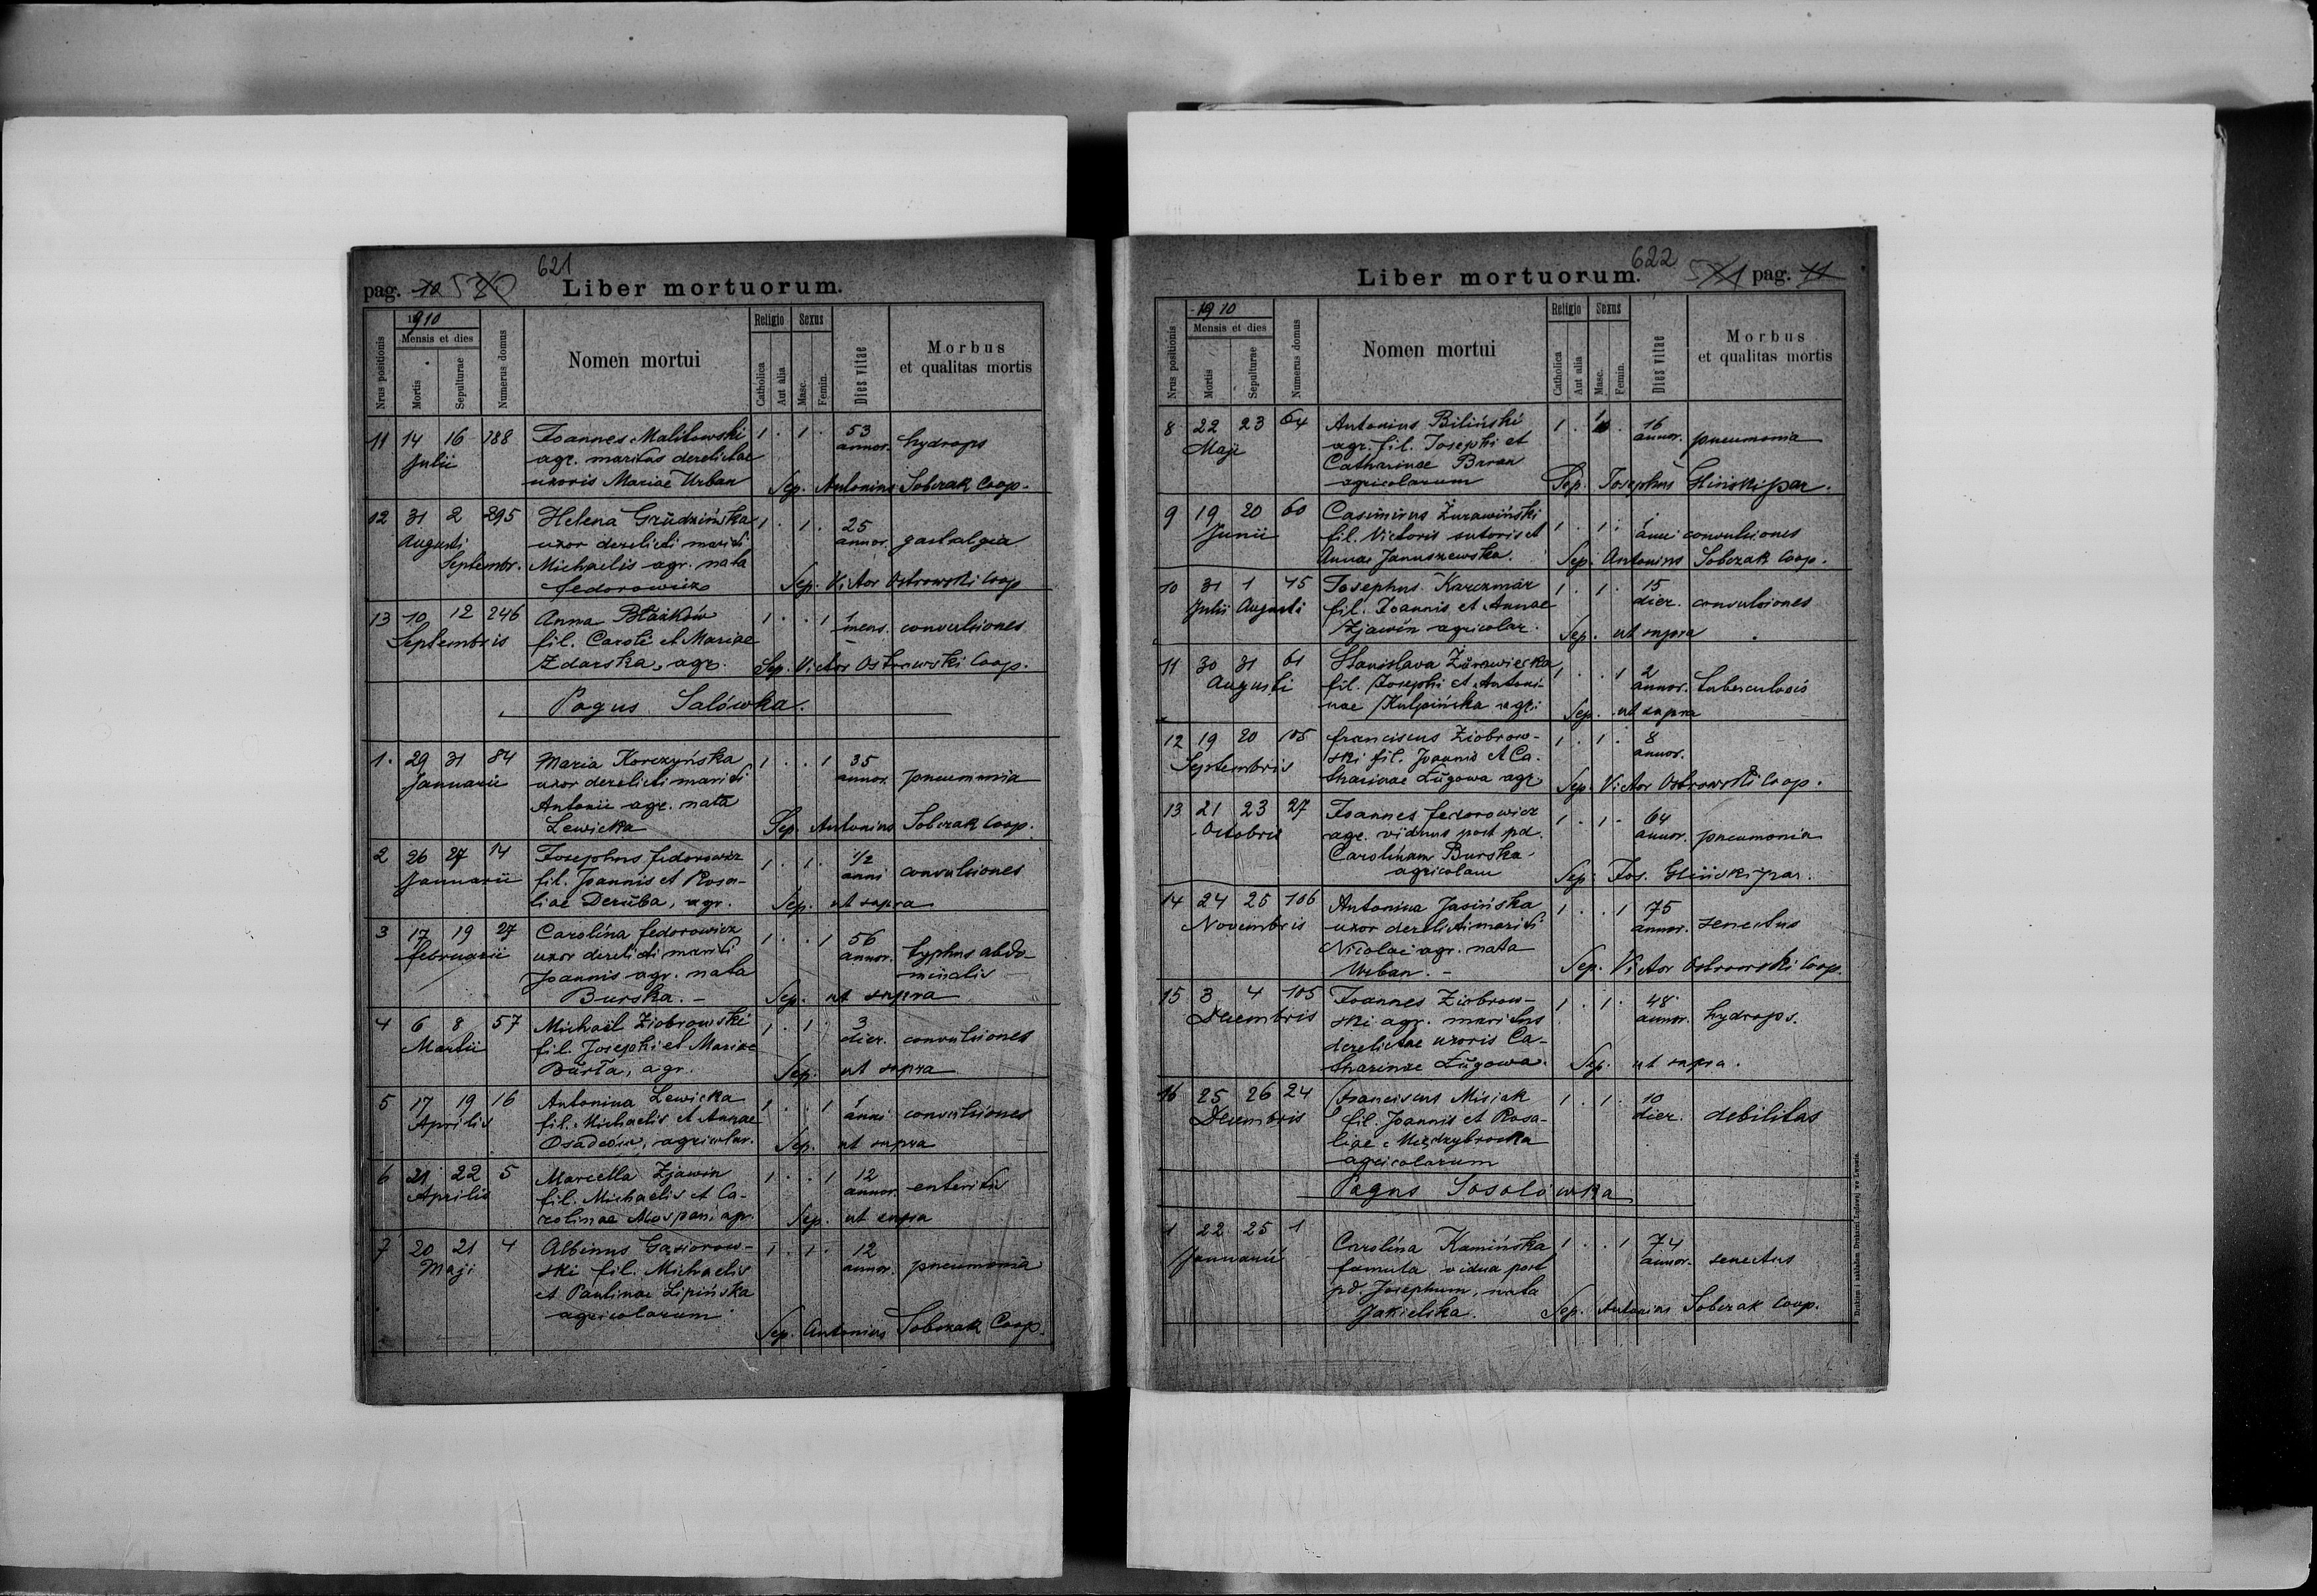 621
pag. 10 570 Liber mortuorum.
Nrus positionis
1910
Mensis et dies
Mortis
Sepulturae
Numerus domus
Nomen mortui
Religio
Catholica
Aut alia
Sexus
Masc.
Femin.
Dies vitae
Morbus
et qualitas mortis
11 14 16 188 Joannes Malitowski 1 . 1 . 53
Julii agr. maritus derelictae annor. hydrops
uxoris Mariae Urban Sep. Antonius Sobczak Coop.
12 31 2 295 Helena Grudzińska 1 . 1 . 25
Augusti uxor derelicti mariti annor. gastralgia
Septembr. Michaelis agr. nata
Fedorowicz Sep. Victor Ostrowski Coop
13 10 12 246 Anna Błażków 1 . . 1 1
Septembris fil. Caroli et Mariae mens. convulsiones
Zdarska, agr. Sep. Victor Ostrowski Coop.
Pagus Salówka.
1. 29 31 84 Maria Korczyńska 1 . . 1 35
Januarii uxor derelicti mariti annor. pneumonia
Antonii agr. nata
Lewicka Sep. Antonius Sobczak Coop.
2 26 27 14 Josephus Fedorowicz 1 . 1 . 1/2
Januarii fil. Joannis et Rosa- anni convulsiones
liae Deruba, agr. Sep. ut supra
3 17 19 27 Carolina Fedorowicz 1 . . 1 56
Februarii uxor derelicti mariti annor. typhus abdo-
Joannis agr. nata minalis
Burska. - Sep. ut supra
4 6 8 57 Michaël Ziobrowski 1 . 1 . 3
Martii fil. Josephi et Mariae dier. convulsiones
Burła, agr. Sep. ut supra
5 17 19 16 Antonina Lewicka 1 . . 1 1
Aprilis fil. Michaelis et Annae anni convulsiones
agricolar. Sep. ut supra
6 21 22 5 Marcella Zjawin 1 . . 1 12
Aprilis fil. Michaelis et Ca- annor. enteritis
rolinae Mospan, agr. Sep. ut supra
7 20 21 4 Albinus Gąsiorow- 1 . 1 . 12
Maji ski fil. Michaelis annor. pneumonia
et Paulinae Lipińska
agricolarum
Sep. Antonius Sobczak Coop.
622
Liber mortuorum. 571 pag. 11
Nrus positionis
1910
Mensis et dies
Mortis
Sepulturae
Numerus domus
Nomen mortui
Religio
Catholica
Aut alia
Sexus
Masc.
Femin.
Dies vitae
Morbus
et qualitas mortis
8 22 23 64 Antonius Biliński 1 . 1 . 16
Maji agr. fil. Josephi et annor. pneumonia
Catharinae Baran
agricolarum Sep. Josephus Gliński par.
9 19 20 60 Casimirus Żurawiński 1 . 1 . 1
Junii fil. Victoris sutoris et anni convulsiones
Annae Januszewska. Sep. Antonius Sobczak Coop.
10 31 1 45 Josephus Karczmar 1 . 1 . 15
Julii Augusti fil. Joannis et Annae dier. convulsiones
Zjawin agricolar. Sep. ut supra
11 30 31 61 Stanislava 1 . . 1 2
Augusti fil. Josephi et Antoni- annor. tuberculosis
nae Kulpińska agr. Sep. ut supra
12 19 20 105 Franciscus Ziobrow- 1 . 1 . 8
Septembris ski fil. Joannis et Ca- annor.
tharinae Ługowa agr. Sep. Victor Ostrowski Coop.
13 21 23 27 Joannes Fedorowicz 1 . 1 . 64
Octobris agr. viduus post pd. annor. pneumonia
Carolinam Burska
agricolam Sep. Jos. Gliński par.
14 24 25 106 Antonina Jasińska 1 . . 1 75
Novembris uxor derelicti mariti annor. senectus
Nicolai agr. nata
Urban. - Sep. Victor Ostrowski Coop.
15 3 4 105 Joannes Ziobrow- 1 . 1 . 48
Decembris ski agr. maritus annor. hydrops.
derelictae uxoris Ca-
tharinae Ługowa. Sep. ut supra.
16 25 26 24 Franciscus Misiak 1 . 1 . 10
Decembris fil. Joannis et Rosa- dier. debilitas
liae Międzybrocka
agricolarum
Pagus Sosolówka
1 22 25 1 Carolina Kamińska 1 . . 1 74
Januarii famula vidua post annor. senectus
pd. Josephum, nata
Jakielska. Sep. Antonius Sobczak Coop.
Drukiem i nakładem Drukarni Ludowej we Lwowie.